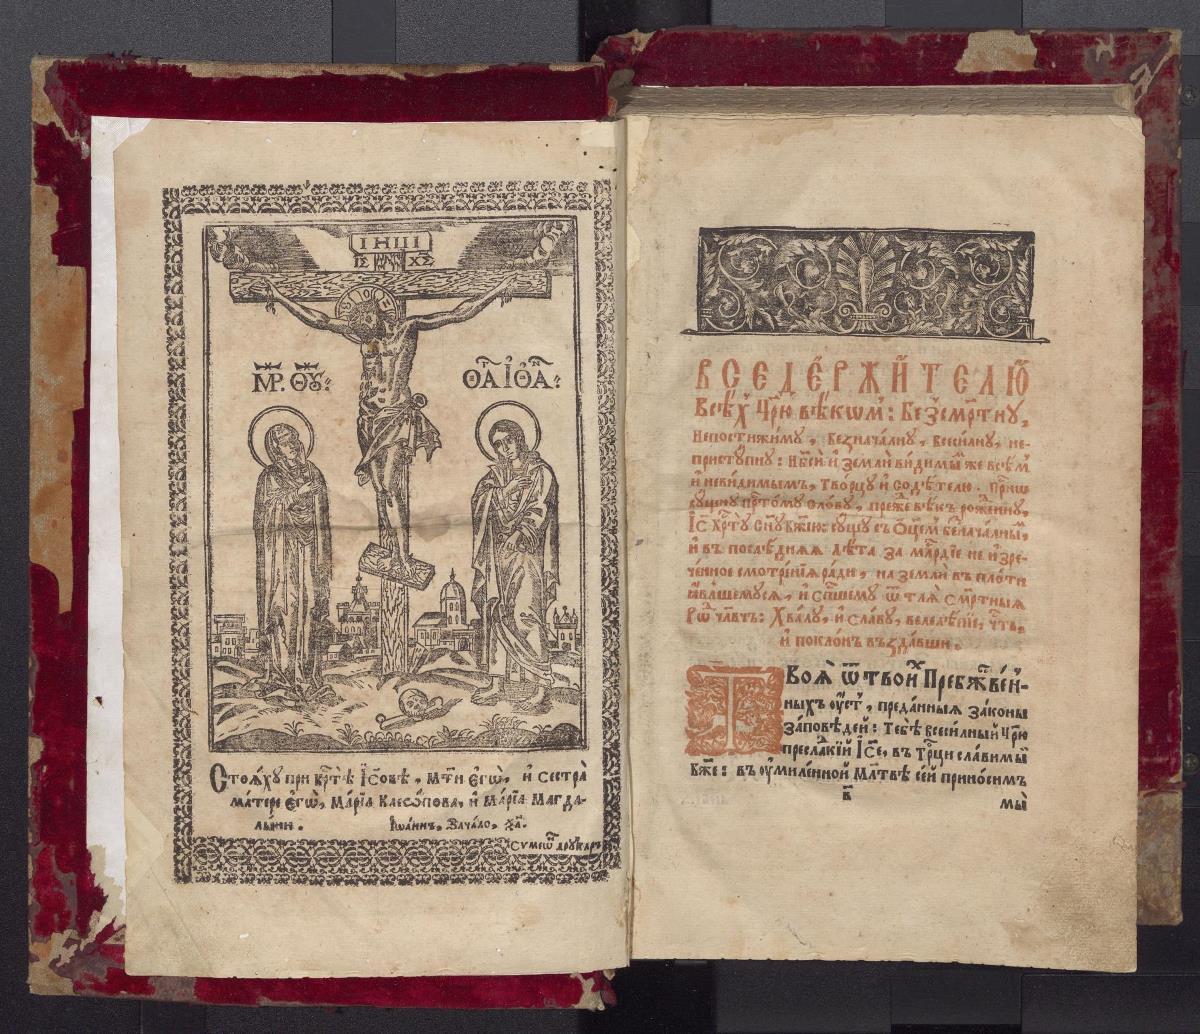 ІНЦІ
ІС ХС
МР. ѲУ:
Стоѧху при крⷭ҇тѣ І҆с҃овѣ, Мт҃и є҆гѡ̀, и҆ сестра̀
матере є҆гѡ̀, Марі́а Клеѡ́пова, и҆ Марі́а Магда-
лы́ни. Іѡа́ннъ, Зача́ло, ѯ҃а.
Сѵмеѡⷩ҇ друкаръ
ВСЕДЕ́РЖИ́ТЕЛЮ
Всѣ́хъ Цр҃ю̀ вѣ́кѡмъ: Безсмр҃тну,
Непостижи́му, Безнача́лну, Всеси́лну, не-
присту́пну: Нбⷭ҇и и҆ землѝ ви́димыⷨ же всѣ́мъ
и҆ неви́димымъ, Творцу̀ и҆ Содѣ́телю.
сло́ву, пре́жⷣе вѣ́къ роже́нну,
І҆с҃ Хрⷭ҇ту̀ Сн҃у Бж҃їю: су́щу съ Ѻ҆ц҃емъ безнача́лныⷨ,
и҆ въ послѣ́днѧѧ лѣ́та за млⷭ҇рдїе не и҆зре-
че́нное смотре́нїѧ ра́ди, на землѝ въ пло́ти
ꙗ҆́вльшемусѧ, и҆ сп҃сшему ѿ тлѧ̀ смр҃тныѧ
Рѡⷣ чл҃вчь: Хвалу̀, и҆ сла́ву, велелѣ́пїе, чтⷭ҇ь,
и҆ поклонъ въздавши.
Твоѧ̀ ѿ твои́хъ Пребжⷭ҇твен-
ныхъ ѹ҆́стъ, преда́нныѧ зако́ны
за́повѣдей: Тебѣ̀ всеси́лный Цр҃ю
пресла́дкїй І҆с҃е, въ Трⷪ҇ци сла́вимый
Бж҃е: въ ѹ҆миле́нной Мл҃твѣ се́й прино́симъ
в҃
мы̀